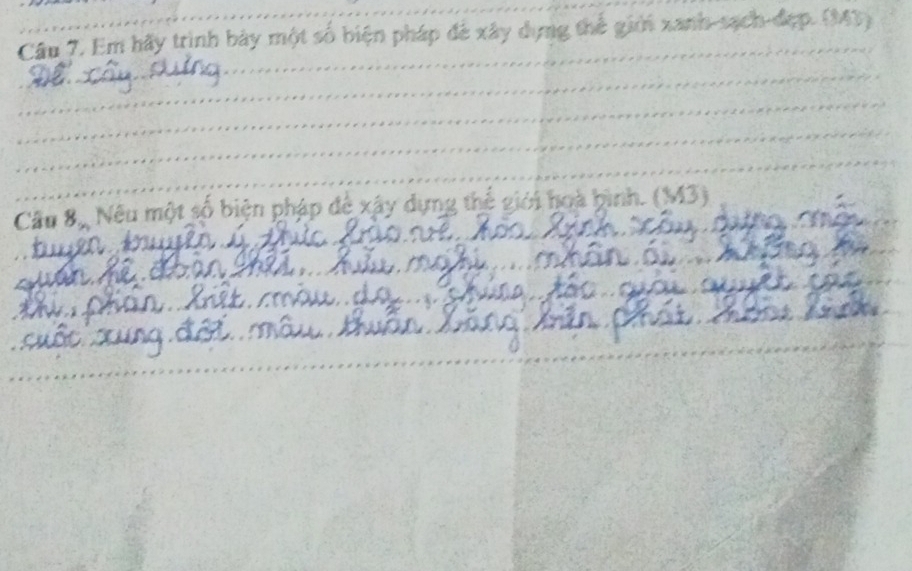 Câu 7. Em hãy trình bày một số biện pháp để xây dựng thế giới xanh-sạch-đẹp. (M3)
Để xây dựng
Câu 8. Nêu một số biện pháp để xây dựng thế giới hoà bình. (M3)
tuyên truyền ý thức bảo vệ hòa bình xây dựng mối
quan hệ đoàn kết, hữu nghị, nhân ái, không
thị, phân biệt màu da, chung tác giải quyết các
cuộc xung đột mâu thuẫn bằng biện pháp hòa bình